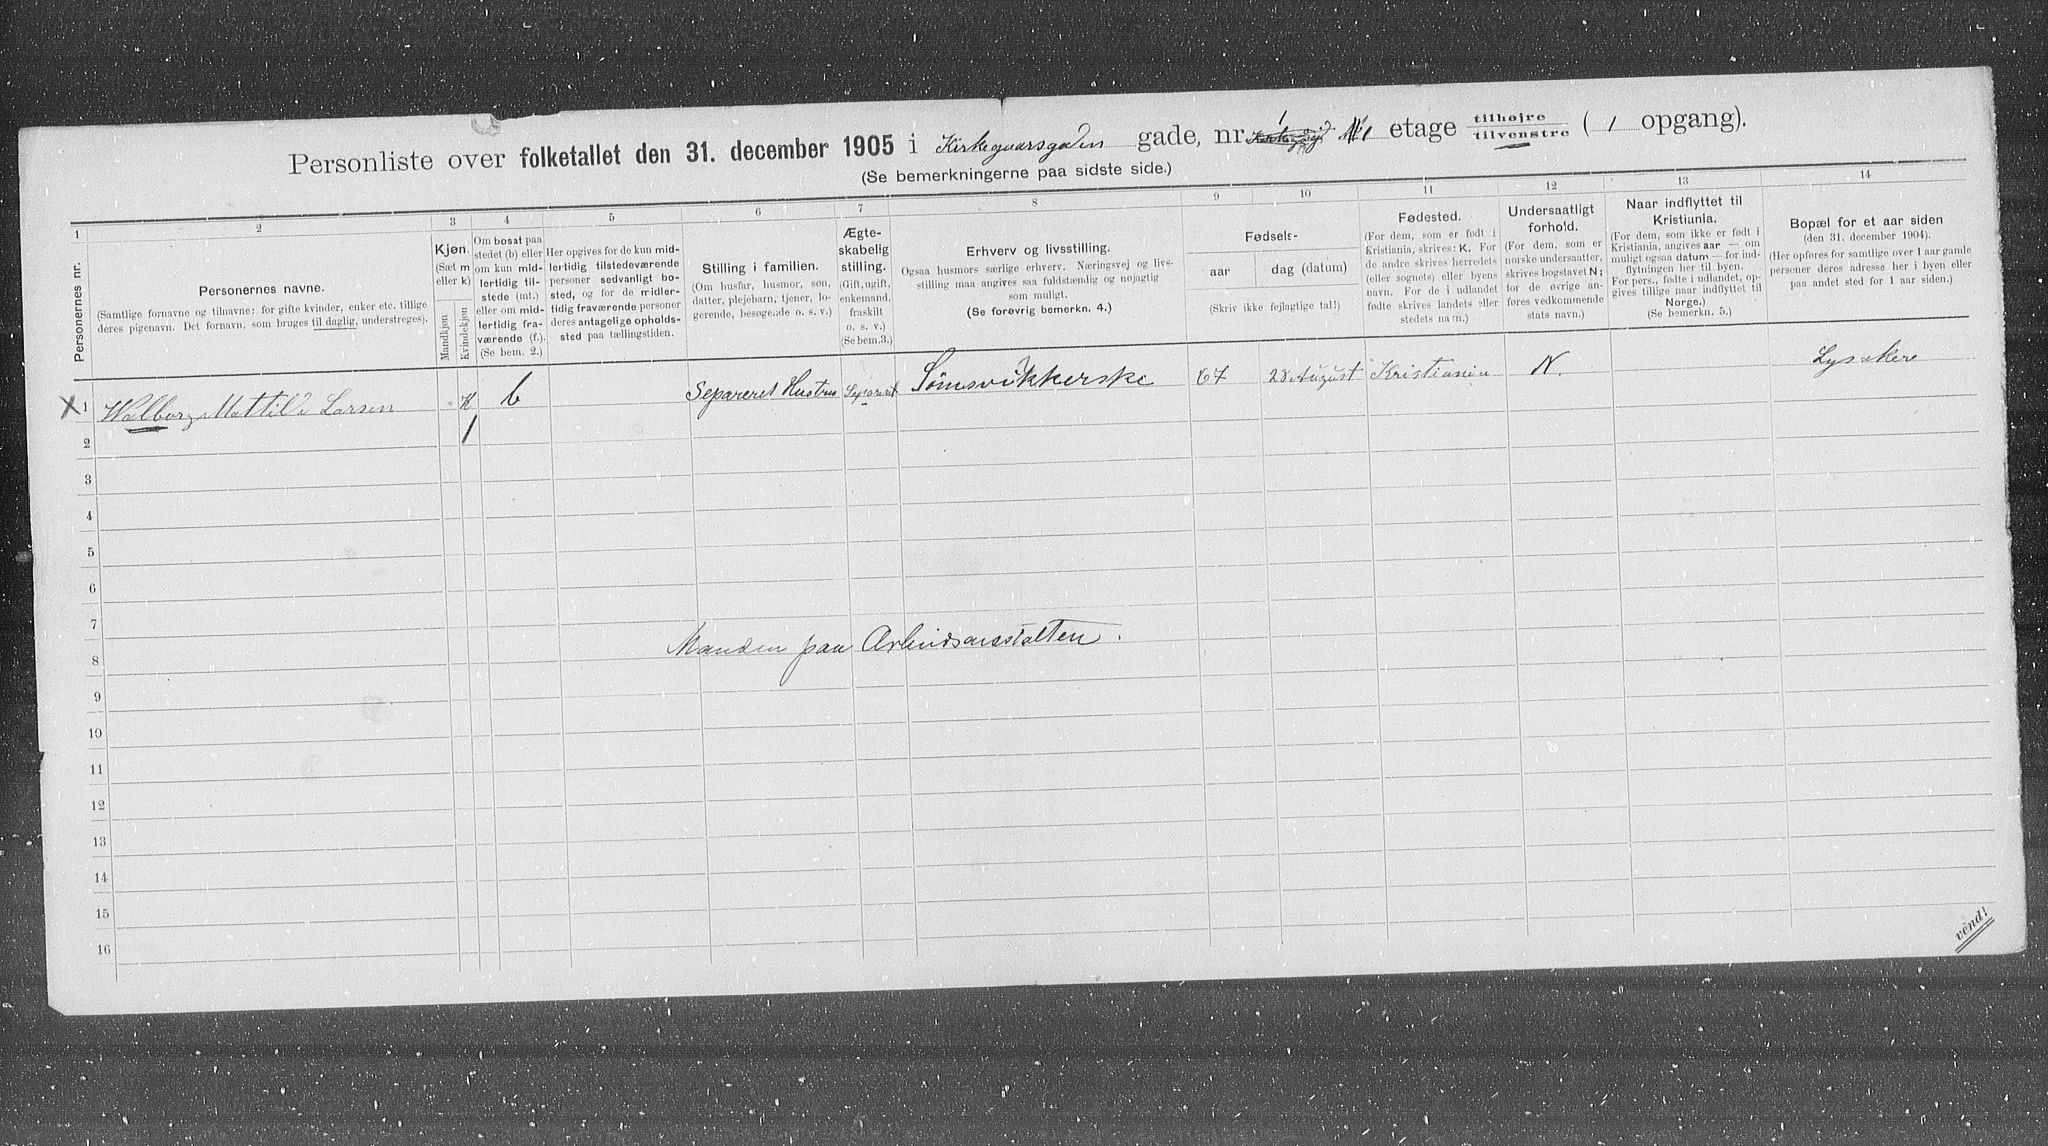 Personliste over folketallet den 31. december 1905 i Kirkegaarsgaden gade, nr. 1 etage tilhøjre
tilvenstre ( 1 opgang).
(Se bemerkningerne paa sidste side.)
1 2 3 4 5 6 7 8 9 10 11 12 13 14
Personernes nr.
Personernes navne.
(Samtlige fornavne og tilnavne: for gifte kvinder, enker etc. tillige
deres pigenavn. Det fornavn, som bruges til daglig, understreges).
Kjøn.
(Sæt m
eller k)
Mandkjøn
Kvindekjøn
Om bosat paa
stedet (b) eller
om kun mid-
lertidig til-
stede (mt.)
eller om mid-
lertidig fra-
værende (f.).
(Se bem. 2.)
Her opgives for de kun mid-
lertidig tilstedeværende
personer sedvanligt bo-
sted, og for de midler-
tidig fraværende personer
deres antagelige opholds-
sted paa tællingstiden.
Stilling i familien.
(Om husfar, husmor, søn,
datter, plejebarn, tjener, lo-
gerende, besøgende o. s. v.)
Ægte-
skabelig
stilling.
(Gift, ugift,
enkemand,
fraskilt
o. s. v.)
(Se bem.3.)
Erhverv og livsstilling.
Ogsaa husmors særlige erhverv. Næringsvej og livs-
stilling maa angives saa fuldstændig og nøjagtig
som muligt.
(Se forøvrig bemerkn. 4.)
Fødsels-
aar
dag (datum)
(Skriv ikke fejlagtige tal!)
Fødested.
(For dem, som er født i
Kristiania, skrives: K. For
de andre skrives herredets
(eller sognets) eller byens
navn. For de i udlandet
fødte skrives landets eller
stedets navn.)
Undersaatligt
forhold.
(For dem, som er
norske undersaatter,
skrives bogstavet N;
for de øvrige an-
føres vedkommende
stats navn.)
Naar indflyttet til
Kristiania.
(For dem, som ikke er født i
Kristiania, angives aar — om
muligt ogsaa datum — for ind-
flytningen her til byen.
For pers., fødte i udlandet, op-
gives tillige naar indflyttet til
Norge.)
(Se bemerkn. 5.)
Bopæl for et aar siden
(den 31. december 1904).
(Her opføres for samtlige over 1 aar gamle
personer deres adresse her i byen eller
paa andet sted for 1 aar siden.)
X 1 Walborg Mattilde Larsen K b Separeret Hustru Separeret Sømsvikkerske 67 28 August Kristiania N. Lysakere
2 1
3
4
5
6
7
Manden paa Arbeidsanstalten.
8
9
10
11
12
13
14
15
16
vend!